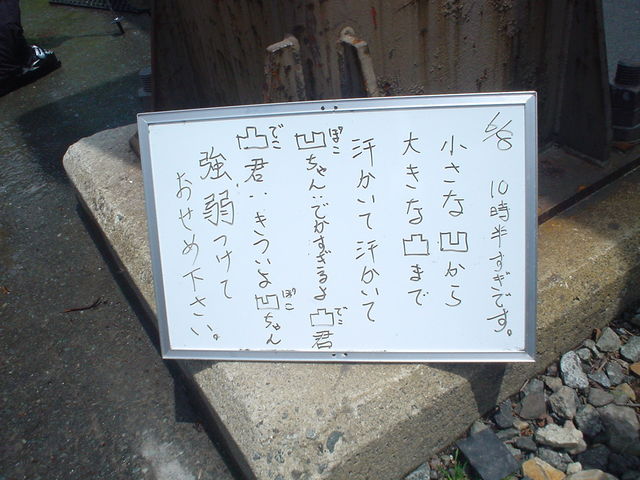 6/8 10時半すぎです。
小さな凹から
大きな凸まで
汗かいて汗かいて
凹ちゃん:でかすぎるよ凸君
凸君:きついよ凹ちゃん
強弱つけて
おせめ下さい。